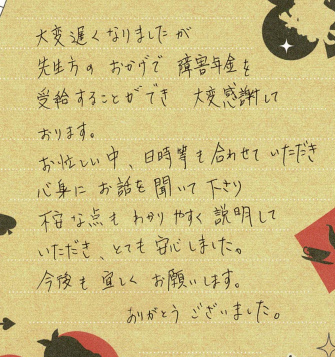 大変遅くなりましたが
先生方の おかげで 障害年金を
受給することができ 大変感謝して
おります。
お忙しい中、日時等も合わせて いただき
心身に お話を聞いて 下さり
不安な点も わかりやすく 説明して
いただき、とても 安心しました。
今後も 宜しく お願いします。
ありがとう ございました。